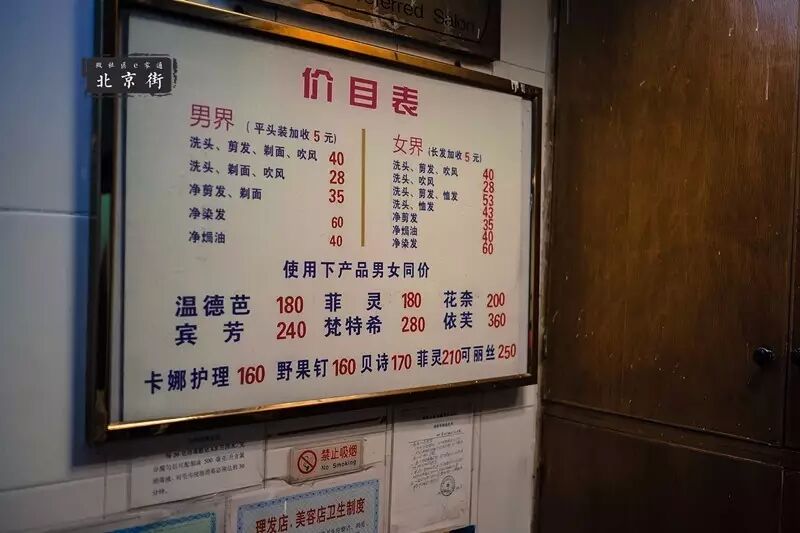 政社区e家通
北京街
ferred Salon
价目表
男界 (平头装加收5元)
洗头、剪发、剃面、吹风 40
洗头、剃面、吹风 28
净剪发、剃面 35
净染发 60
净焗油 40
女界 (长发加收5元)
洗头、剪发、吹风 40
洗头、吹风 28
洗头、剪发、恤发 53
洗头、恤发 43
净剪发 35
净焗油 40
净染发 60
使用下产品男女同价
温德芭 180 菲灵 180 花奈 200
宾芳 240 梵特希 280 依芙 360
卡娜护理 160 野果钉 160 贝诗 170 菲灵 210 可丽丝 250
禁止吸烟
No Smoking
理发店、美容店卫生制度